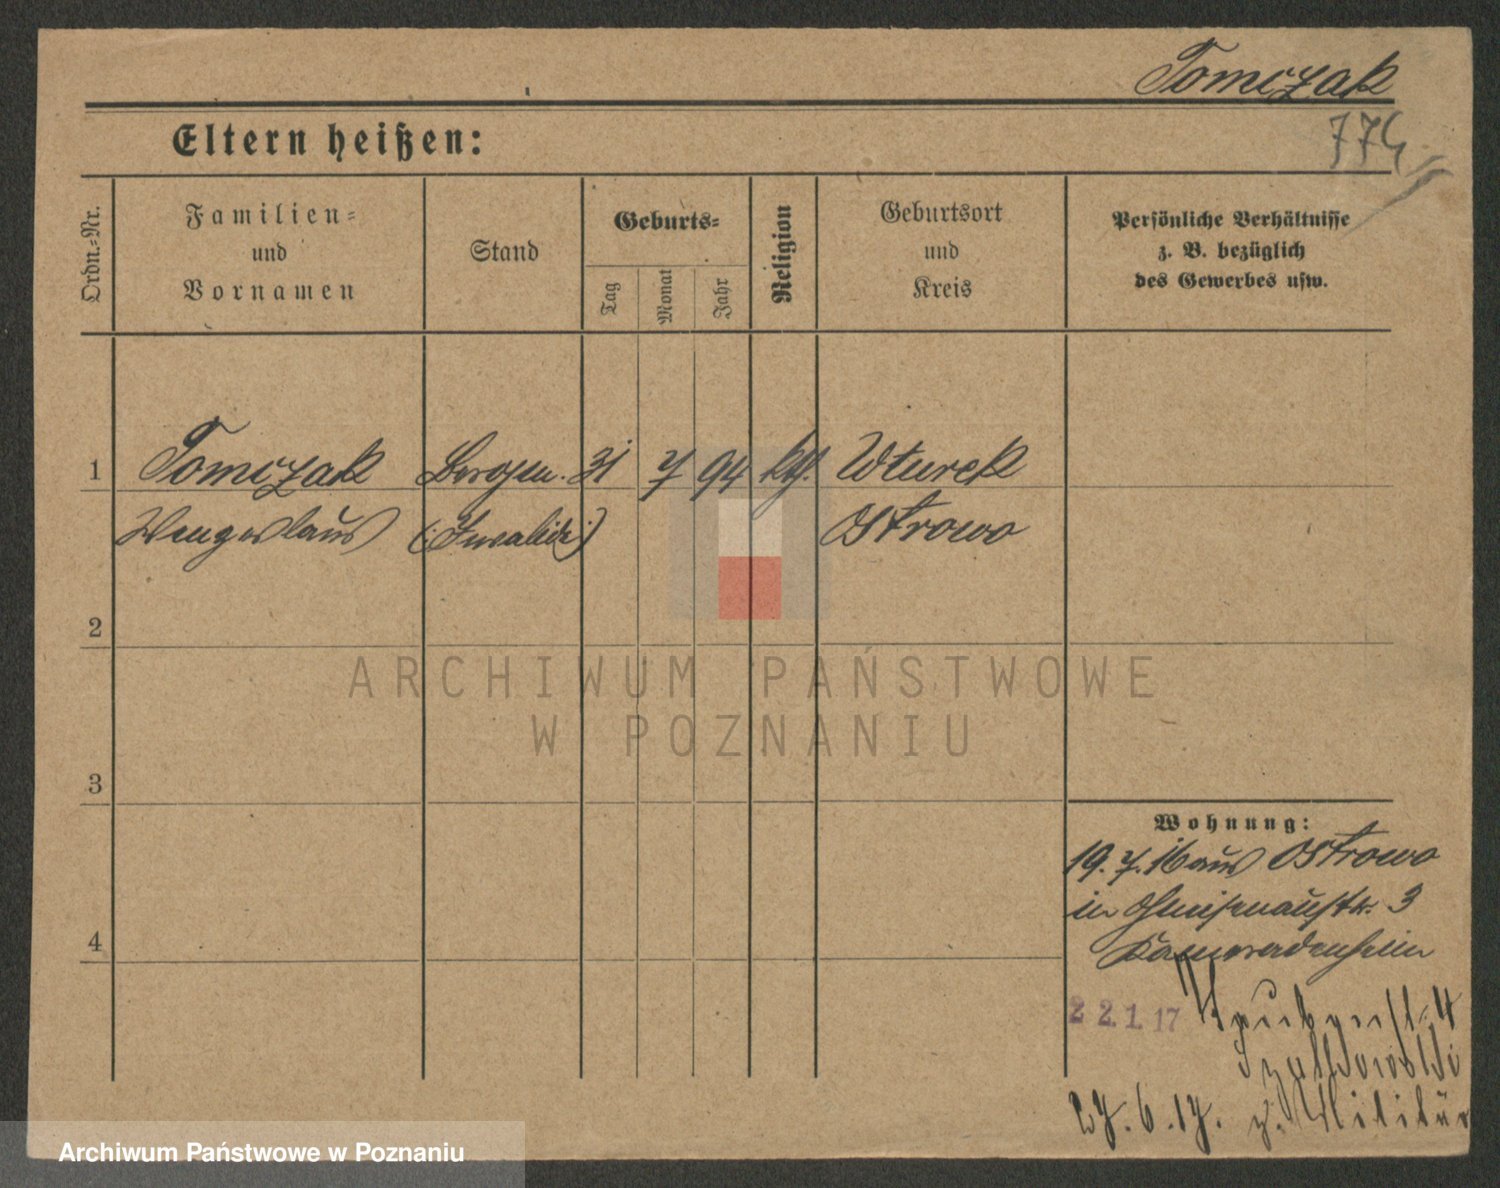 Tomczak
774
Eltern heißen:
Ordn.-Nr.
Familien-
und
Vornamen
Stand
Geburts-
Tag
Monat
Jahr
Religion
Geburtsort
und
Kreis
Persönliche Verhältnisse
z. B. bezüglich
des Gewerbes usw.
1 Tomczak 31 7 94 kth. Wturek
Wenzeslaus (: Invalide :) Ostrowo
2
3
4
Wohnung:
19. 7. 16 aus Ostrowo
in Gneisenaustr. 3
Kameradenheim
22.1.17
27. 6. 17. z. Militär
ARCHIWUM PAŃSTWOWE
W POZNANIU
Archiwum Państwowe w Poznaniu